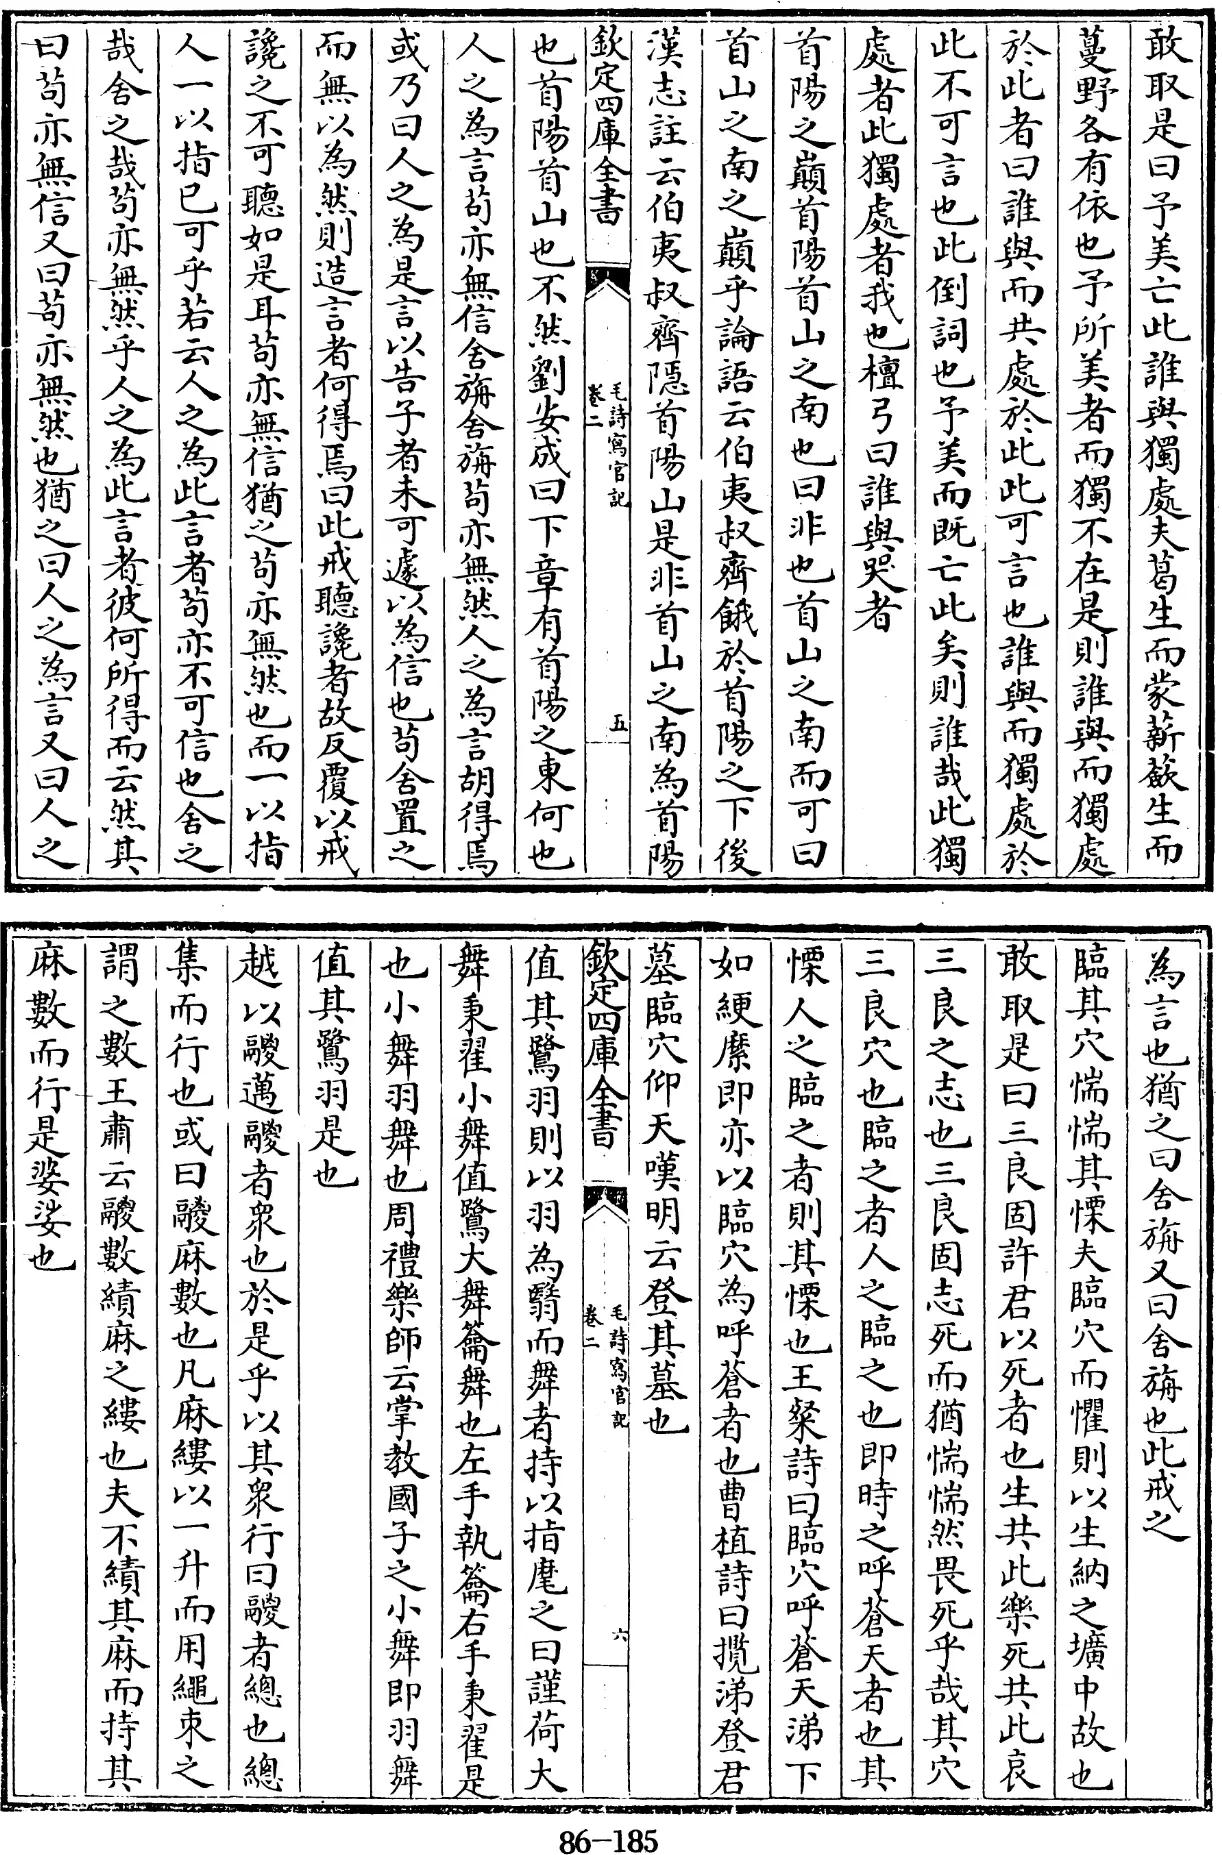 敢取是曰予美亡此誰與獨處夫葛生而蒙薪蘞生而
蔓野各有依也予所美者而獨不在是則誰與而獨處
於此者曰誰與而共處於此此可言也誰與而獨處於
此不可言也此倒詞也予美而既亡此矣則誰哉此獨
處者此獨處者我也檀弓曰誰與哭者
首陽之巔首陽首山之南也曰非也首山之南而可曰
首山之南之巔乎論語云伯夷叔齊餓於首陽之下後
漢志註云伯夷叔齊隱首陽山是非首山之南為首陽
欽定四庫全書
毛詩寫官記
卷二
五
也首陽首山也不然劉安成曰下章有首陽之東何也
人之為言苟亦無信舍旃舍旃苟亦無然人之為言胡得焉
或乃曰人之為是言以告子者未可遽以為信也苟舍置之
而無以為然則造言者何得焉曰此戒聽讒者故反覆以戒
讒之不可聽如是耳苟亦無信猶之苟亦無然也而一以指
人一以指已可乎若云人之為此言者苟亦不可信也舍之
哉舍之哉苟亦無然乎人之為此言者彼何所得而云然其
曰苟亦無信又曰苟亦無然也猶之曰人之為言又曰人之
為言也猶之曰舍旃又曰舍旃也此戒之
臨其穴惴惴其慄夫臨穴而懼則以生納之壙中故也
敢取是曰三良固許君以死者也生共此樂死共此哀
三良之志也三良固志死而猶惴惴然畏死乎哉其穴
三良穴也臨之者人之臨之也即時之呼蒼天者也其
慄人之臨之者則其慄也王粲詩曰臨穴呼蒼天涕下
如綆縻即亦以臨穴為呼蒼者也曹植詩曰攬涕登君
墓臨穴仰天嘆明云登其墓也
欽定四庫全書
毛詩寫官記
卷二
六
值其鷺羽則以羽為翳而舞者持以指麾之曰謹荷大
舞秉翟小舞值鷺大舞籥舞也左手執籥右手秉翟是
也小舞羽舞也周禮樂師云掌教國子之小舞即羽舞
值其鷺羽是也
越以鬷邁鬷者衆也於是乎以其衆行曰鬷者總也總
集而行也或曰鬷麻數也凡麻縷以一升而用繩朿之
謂之數王肅云鬷數績麻之縷也夫不績其麻而持其
麻數而行是婆娑也
86-185